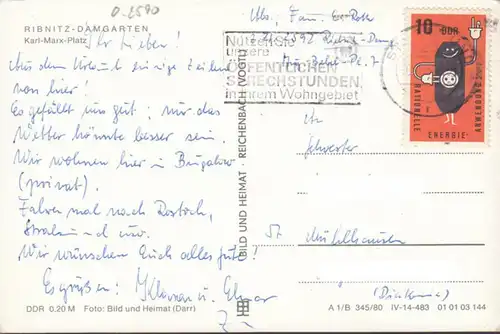 0-2590
RIBNITZ-DAMGARTEN
Karl-Marx-Platz
Ihr Lieben!
Aus dem Urlaub einige Zeilen
von hier!
Es gefällt uns gut, nur das
Wetter könnte besser sein.
Wir wohnen hier in Bungalow
(privat).
Fahren mal nach Rostock,
Stralsund usw.
Wir wünschen Euch alles gute!
Es grüßen: Klaus u.
DDR 0,20 M Foto: Bild und Heimat (Darr)
BILD UND HEIMAT · REICHENBACH (VOGTL)
Abs. Fam. Roth
Nutzen Sie
unsere
ÖFFENTLICHEN
SPRECHSTUNDEN
in Ihrem Wohngebiet
10 DDR
RATIONELLE
ENERGIE-
ANWENDUNG
Schwester
57 Mühlhausen
A 1/B 345/80 IV-14-483 01 01 03 144